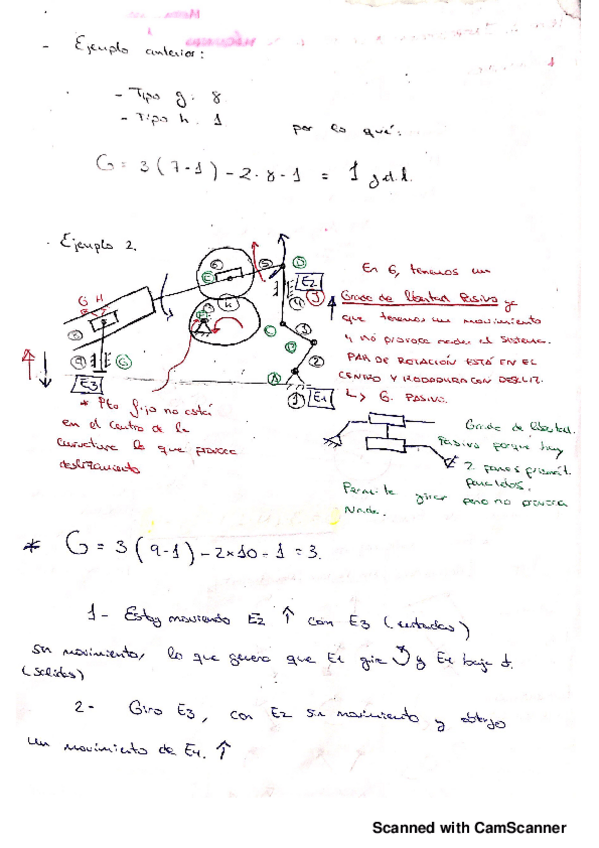 - Ejemplo anterior:
- Tipo g: 8
- Tipo h: 1
por lo qué:
G = 3(7-1) - 2·8 - 1 = 1 g.d.l.
· Ejemplo 2.
En 6, tenemos un
Grado de libertad Pasivo y
que tenemos un movimiento
y no provoca nada el sistema.
PAR DE ROTACIÓN ESTÁ EN EL
CENTRO Y RODADURA CON DESLIZ.
↳ G. PASIVO.
G H
6
5
D
E2
J
4
K
C
3
2
A
1
E1
8
9
G
E3
* Pto fijo no está
en el centro de la
curvatura lo que provoca
deslizamiento
Grado de libertad.
Pasivo porque hay
2 pares prismát.
paralelos.
Permite girar pero no provoca
Nada.
* G = 3(9-1) - 2x10 - 1 = 3.
1- Estoy moviendo E2 ↑ con E3 (entradas)
sin movimiento, lo que genera que E1 gire y E4 baje ↓.
(salidas)
2- Giro E3, con E2 sin movimiento y obtengo
un movimiento de E4. ↑
Scanned with CamScanner